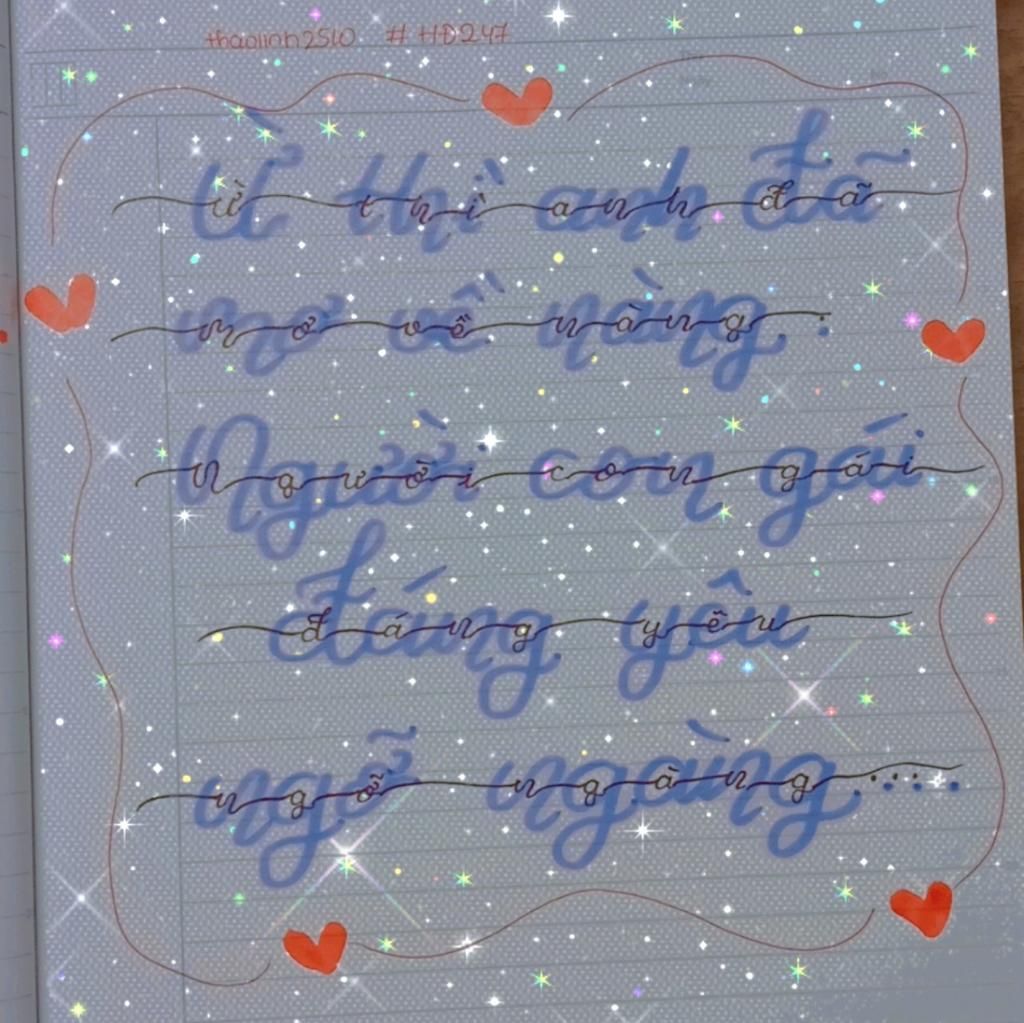 thaolinh2510 # HĐ247
Ừ thì anh đã
mơ về nàng.
Người con gái
đáng yêu
ngỡ ngàng.....